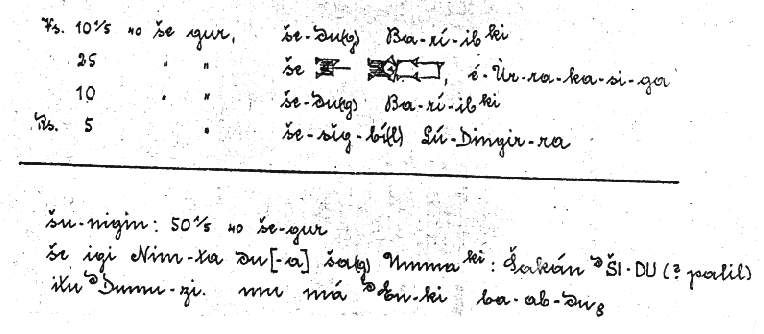 Vs. 10 1/5 40 še gur, še-du(g) Ba-rí-ib ki
25 " " še , é-Ùr-ra-ka-si-ga
10 " " še-du(g) Ba-rí-ib ki
Rs. 5 " še-sig-bí(l) Lú-Dingir-ra
šu-nigin: 50 1/5 40 še-gur
še igi Nim-ta du[-a] ša(g) Umma ki: Šakán ᵈŠI-DU (? palil)
itu ᵈDumu-zi. mu má ᵈEn-ki ba-ab-du₈